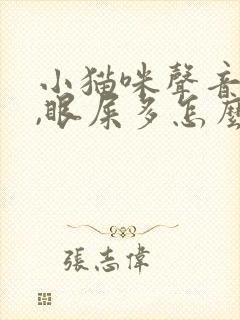 小猫咪聲音
,眼屎多怎麼
張志偉